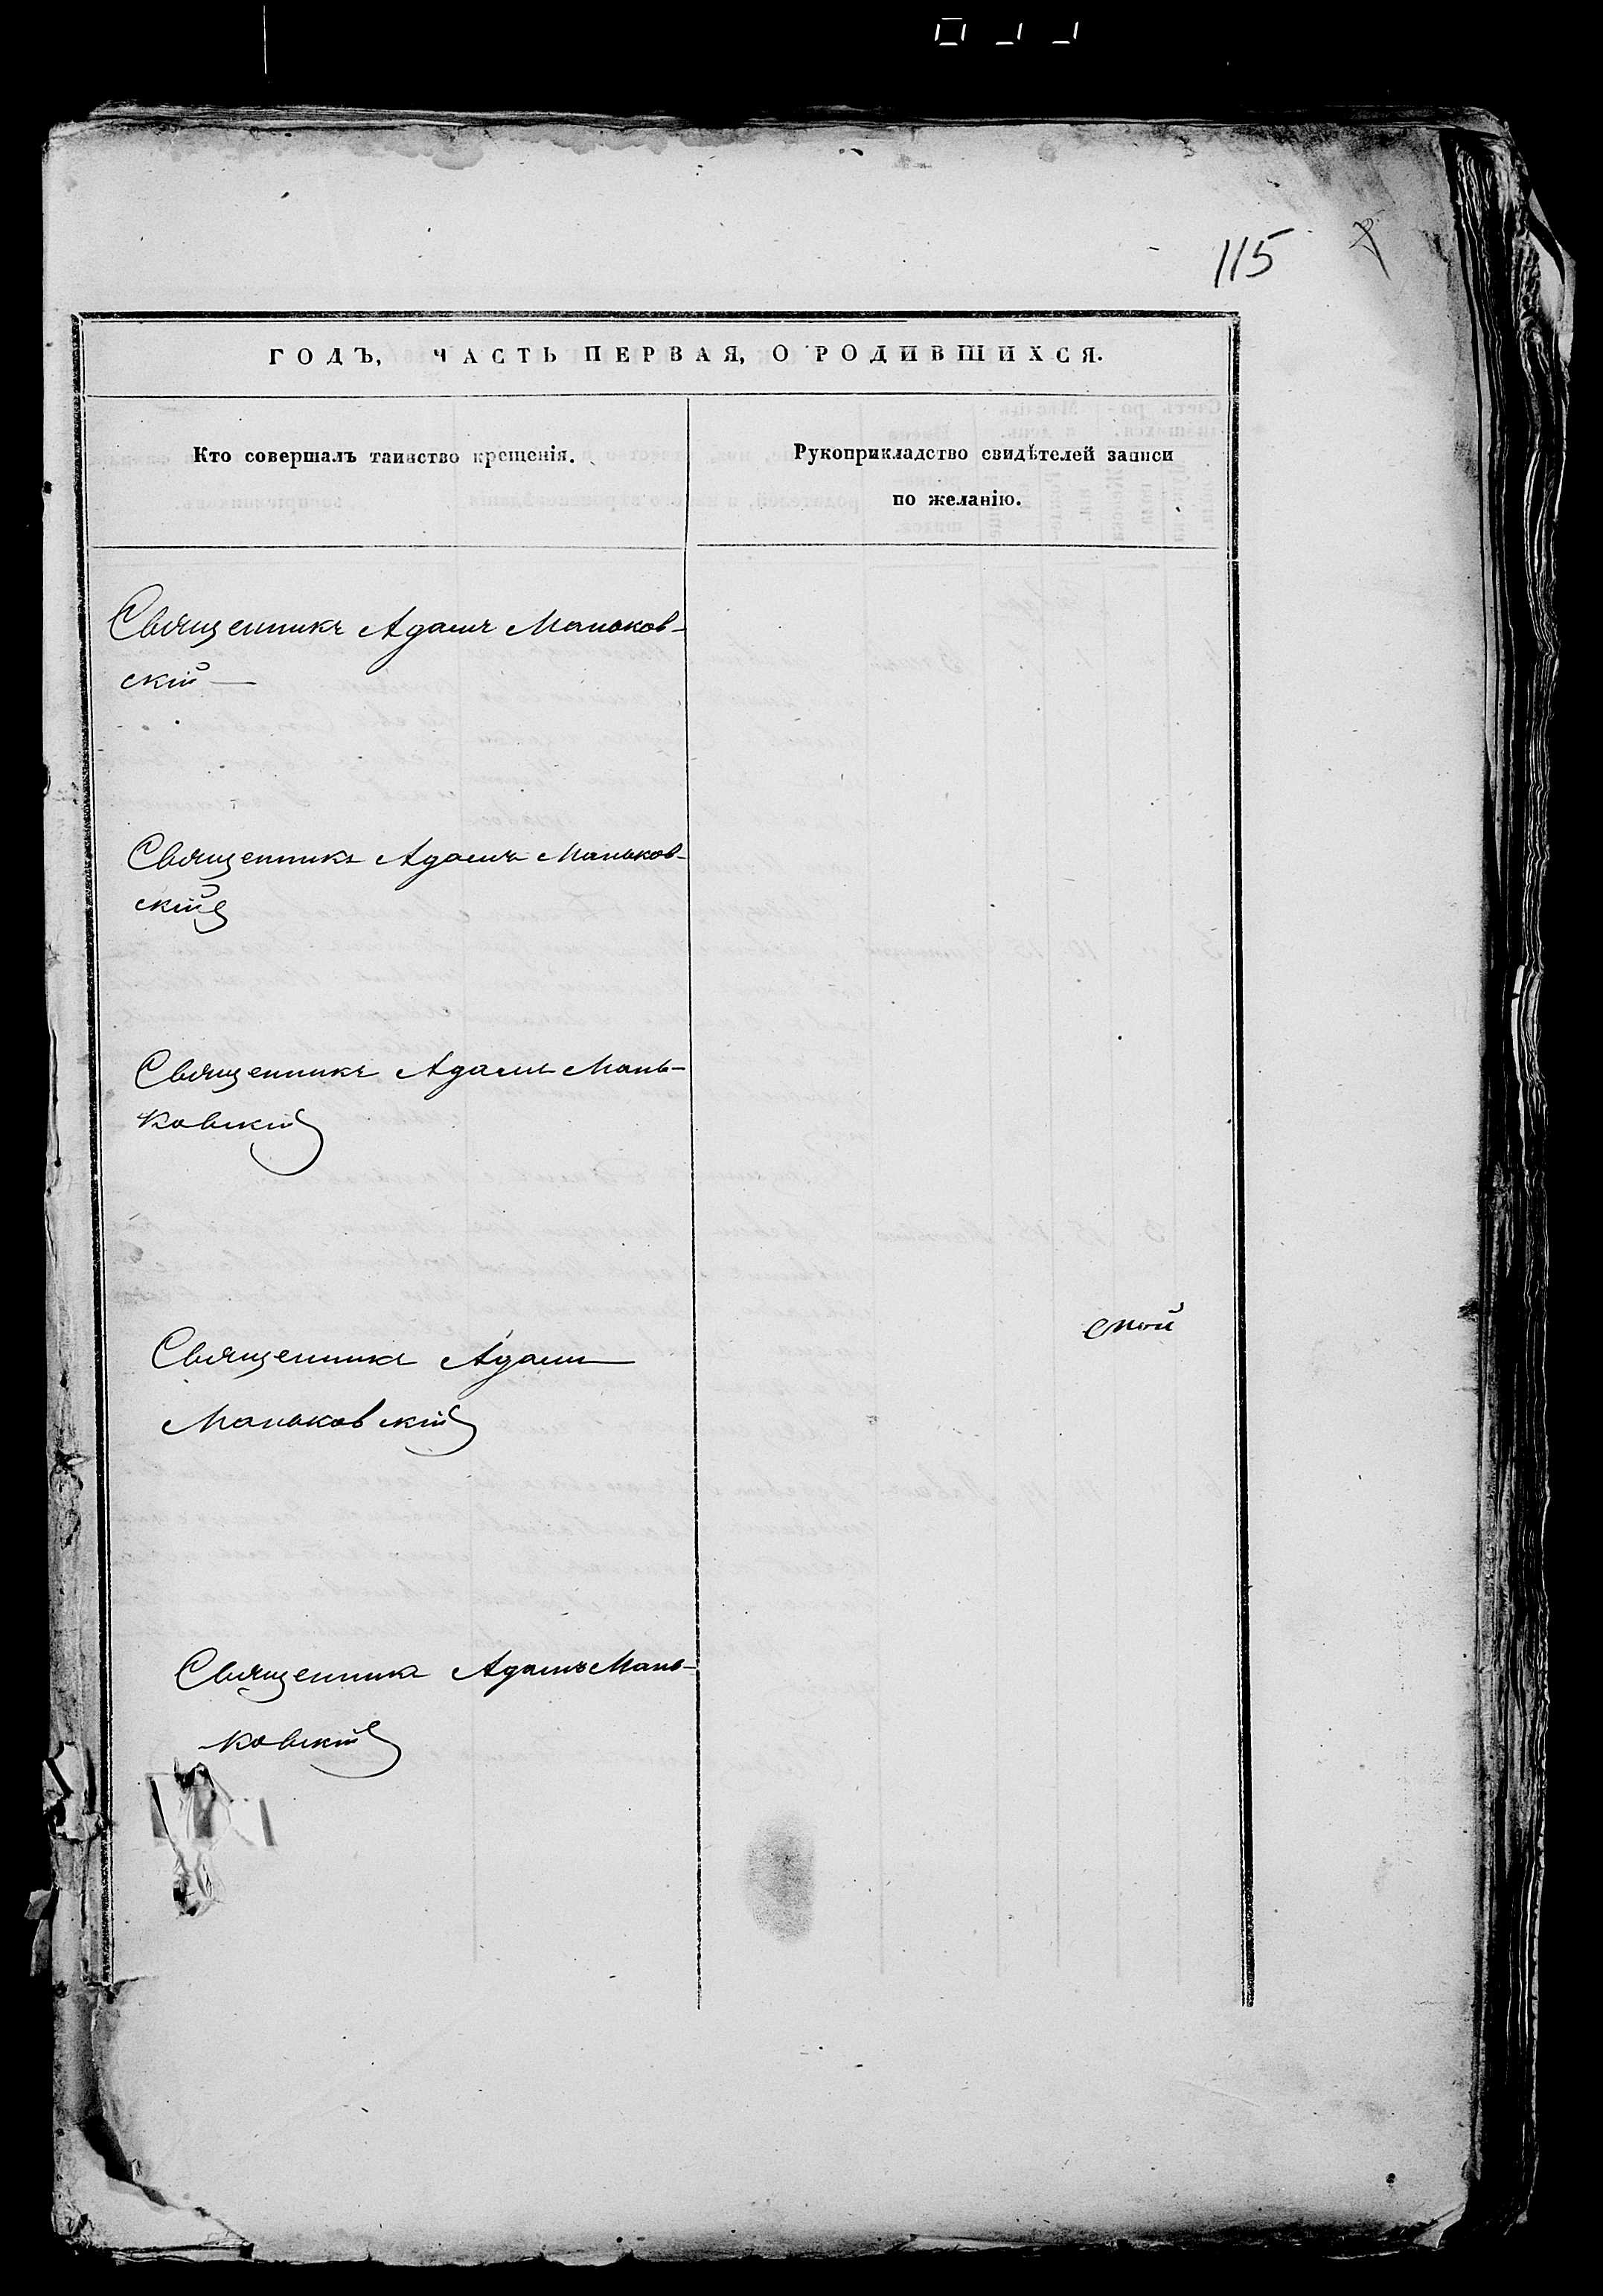 115
ГОДЪ, ЧАСТЬ ПЕРВАЯ, О РОДИВШИХСЯ.
Кто совершалъ таинство крещенія.
Рукоприкладство свидѣтелей записи
по желанію.
Священникъ Адамъ Маньков-
скій
Священникъ Адамъ Маньков-
скій
Священникъ Адамъ Мань-
ковскій
Священникъ Адамъ
Маньковскій
Священникъ Адамъ Мань-
ковскій